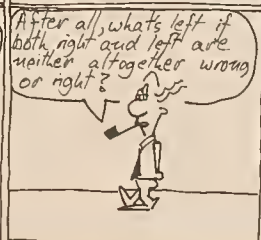 After all, what's left if
both right and left are
neither altogether wrong
or right?